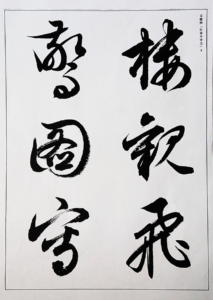 楼觀飛
驚圖寫